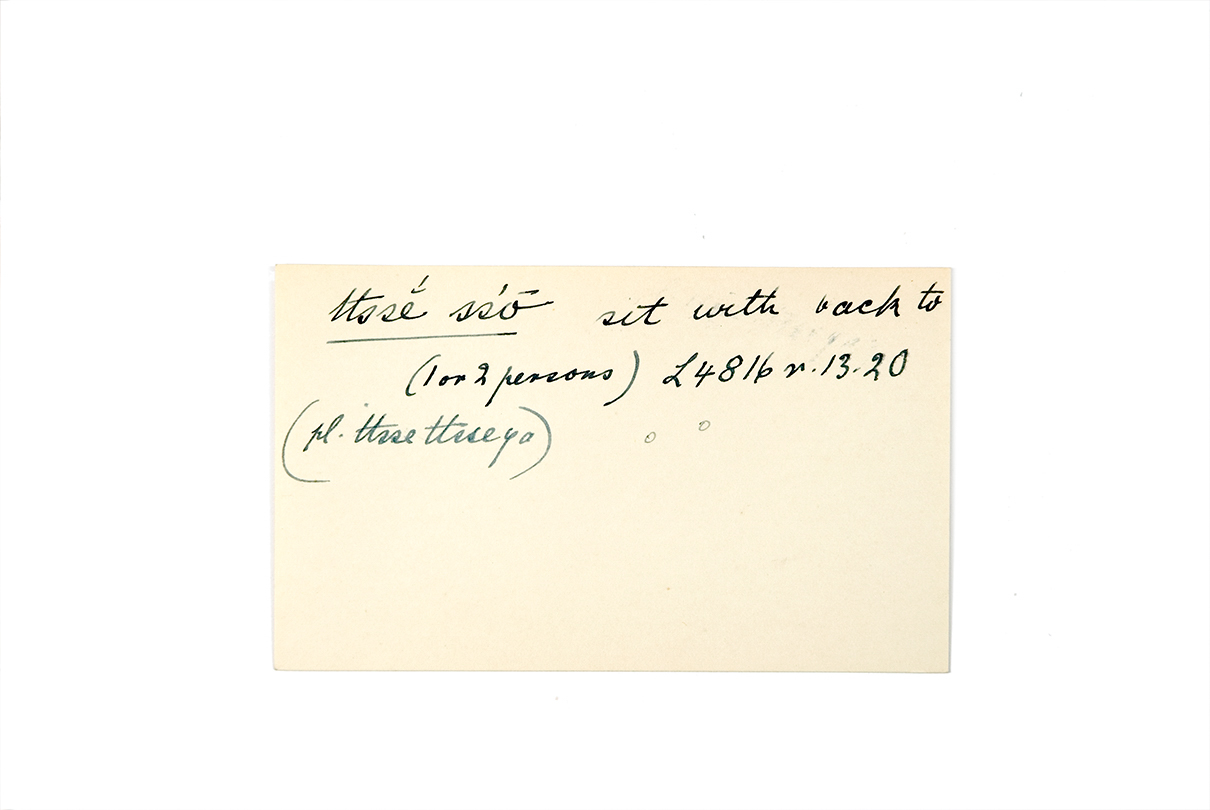 ttssĕ́ ss'ō sit with back to
(1 or 2 persons) L4816 r.13-20
(pl. ttsse ttsseya)